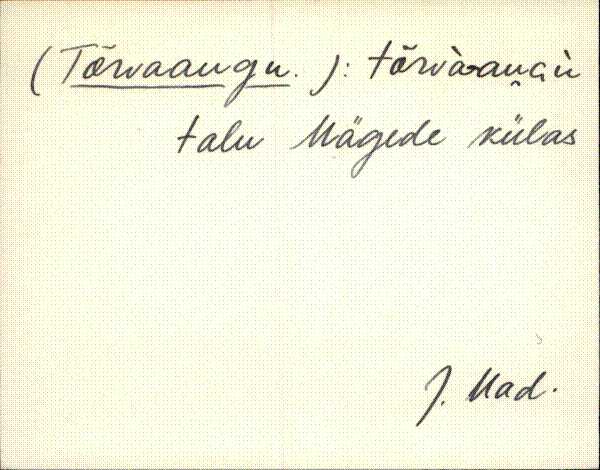 (Tõrvaangu.): tõrvà-aŋɢù
talu Mägede külas
J. Mad.